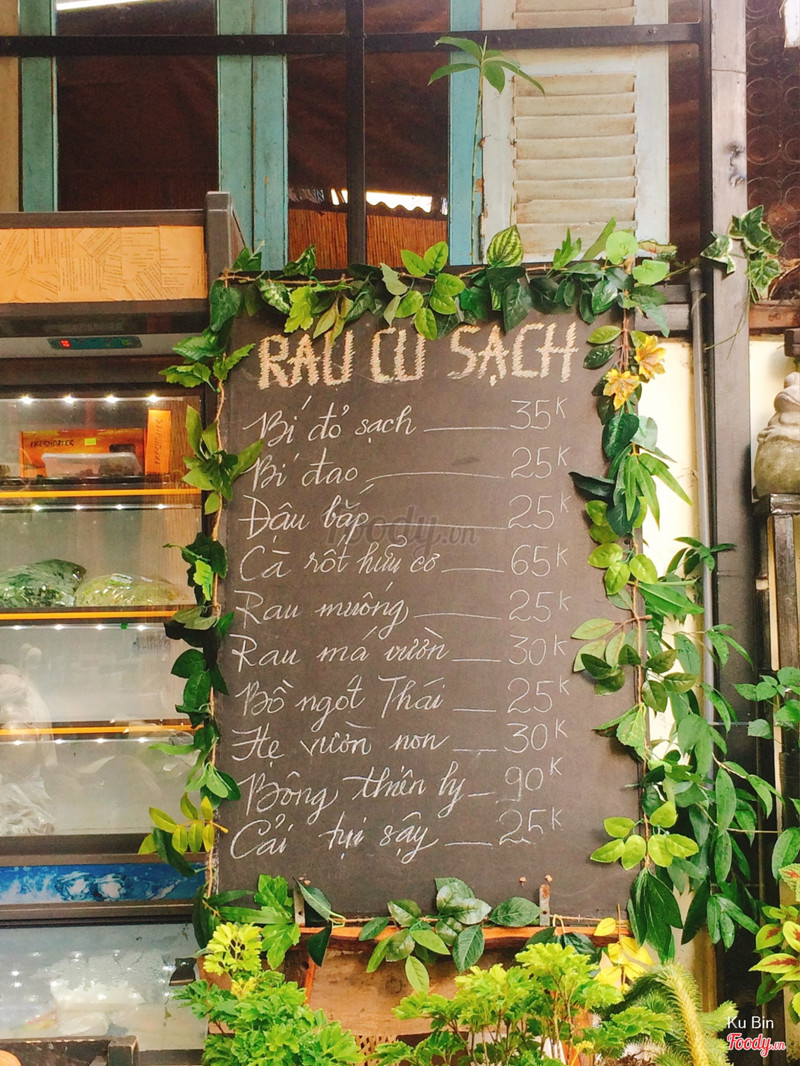 RAU CỦ SẠCH
Bí đỏ sạch 35K
Bí đao 25K
Đậu bắp 25K
Foody.vn
Cà rốt hữu cơ 65K
Rau muống 25K
Rau má vườn 30K
Bồ ngót Thái 25K
Hẹ vườn non 30K
Bông thiên lý 90K
Cải tụi sậy 25K
Ku Bin
Foody.vn